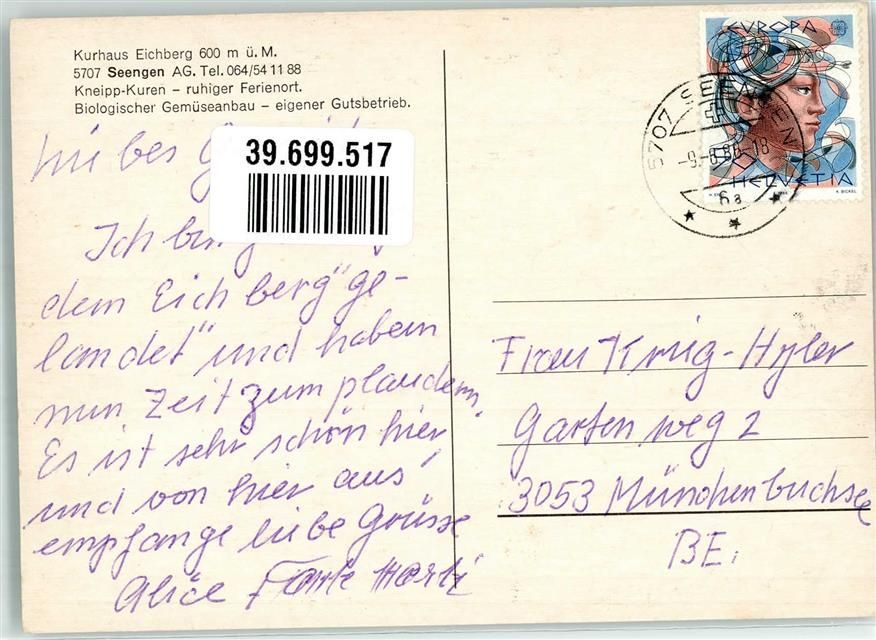 Kurhaus Eichberg 600 m ü. M.
5707 Seengen AG. Tel. 064/54 11 88
Kneipp-Kuren – ruhiger Ferienort.
Biologischer Gemüseanbau – eigener Gutsbetrieb.
39.699.517
Ich bin
dem Eichberg "ge-
landet" und haben
nun Zeit zum plaudern.
Es ist sehr schön hier
und von hier aus
empfange liebe Grüsse
Alice
EUROPA
HELVETIA
5707 SEENGEN
6a
Frau
Gartenweg 2
3053 Münchenbuchsee
BE.